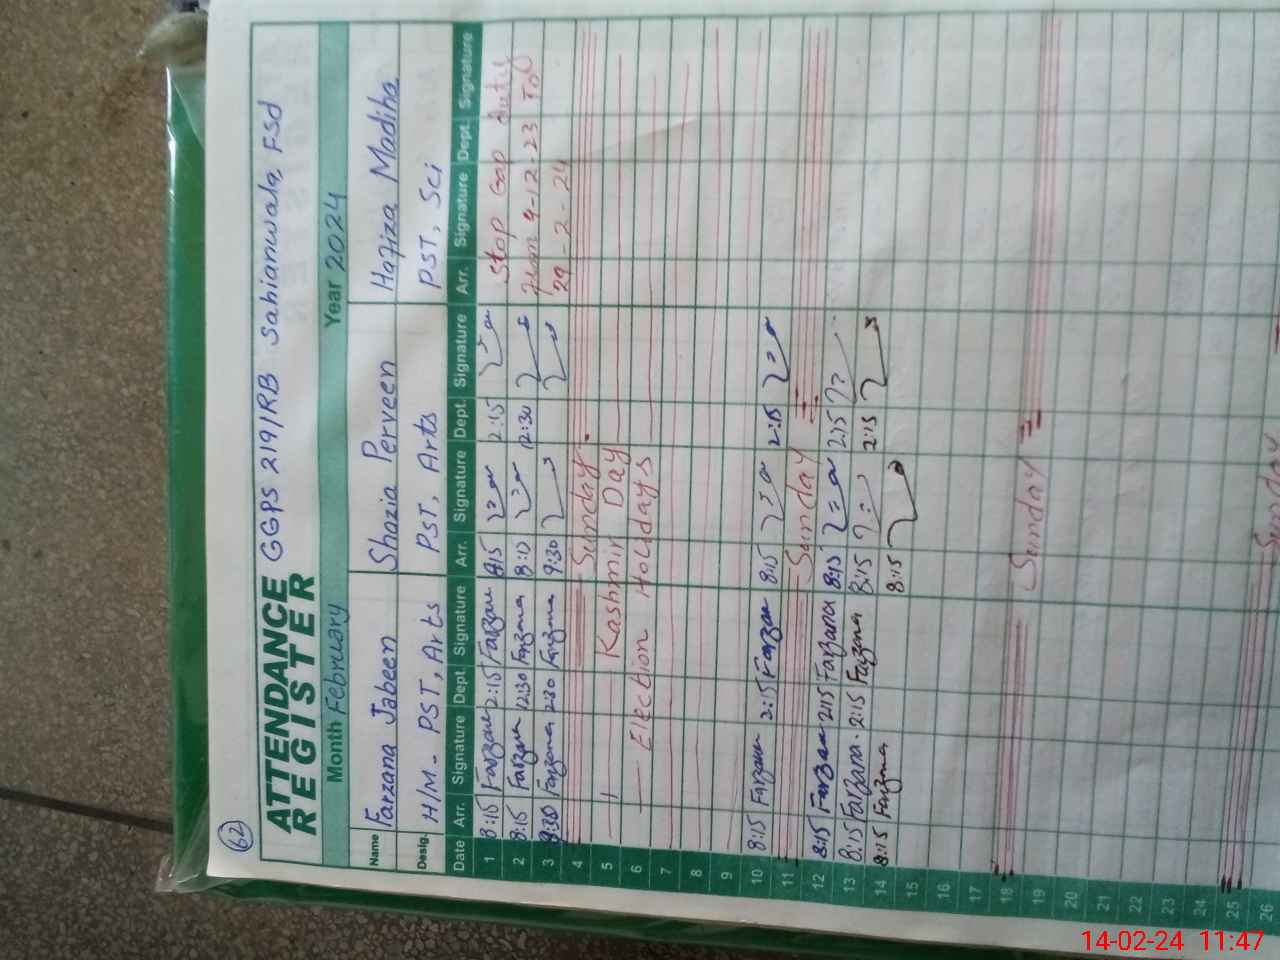 62
ATTENDANCE REGISTER GGPS 219/RB Sahianwala, FSd
Month February Year 2024
Name Farzana Jabeen Shazia Perveen Hafiza Madiha
Desig. H/M - PST, Arts PST, Arts PST, Sci
Date Arr. Signature Dept. Signature Arr. Signature Dept. Signature Arr. Signature Dept. Signature
1 8:15 Farzana 2:15 Farzana 8:15 2:15 Stop Gap duty
2 8:15 Farzana 12:30 Farzana 8:15 12:30 from 4-12-23 To
3 9:30 Farzana 2:30 Farzana 9:30 29-2-24
4 Sunday
5 Kashmir Day
6 Election Holidays
7
8
9
10 8:15 Farzana 2:15 Farzana 8:15 2:15
11 Sunday
12 8:15 Farzana 2:15 Farzana 8:15 2:15
13 8:15 Farzana 2:15 Farzana 8:15 2:15
14 8:15 Farzana 8:15
15
16
17
18 Sunday
19
20
21
22
23
24
25 Sunday
26
14-02-24 11:47